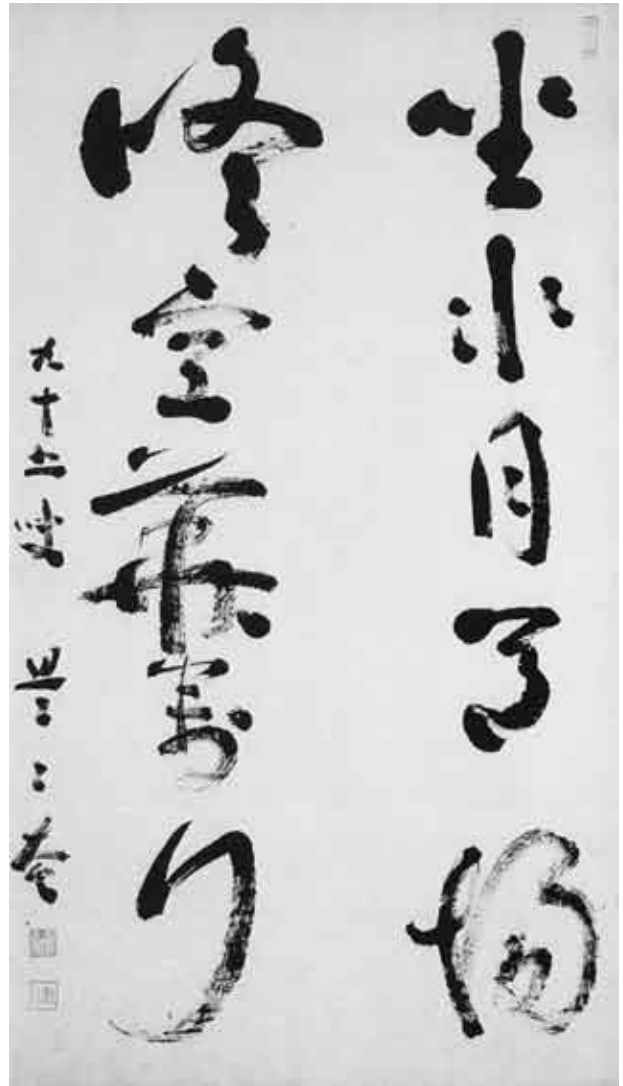 坐水月道場
修空華萬行
九十叟